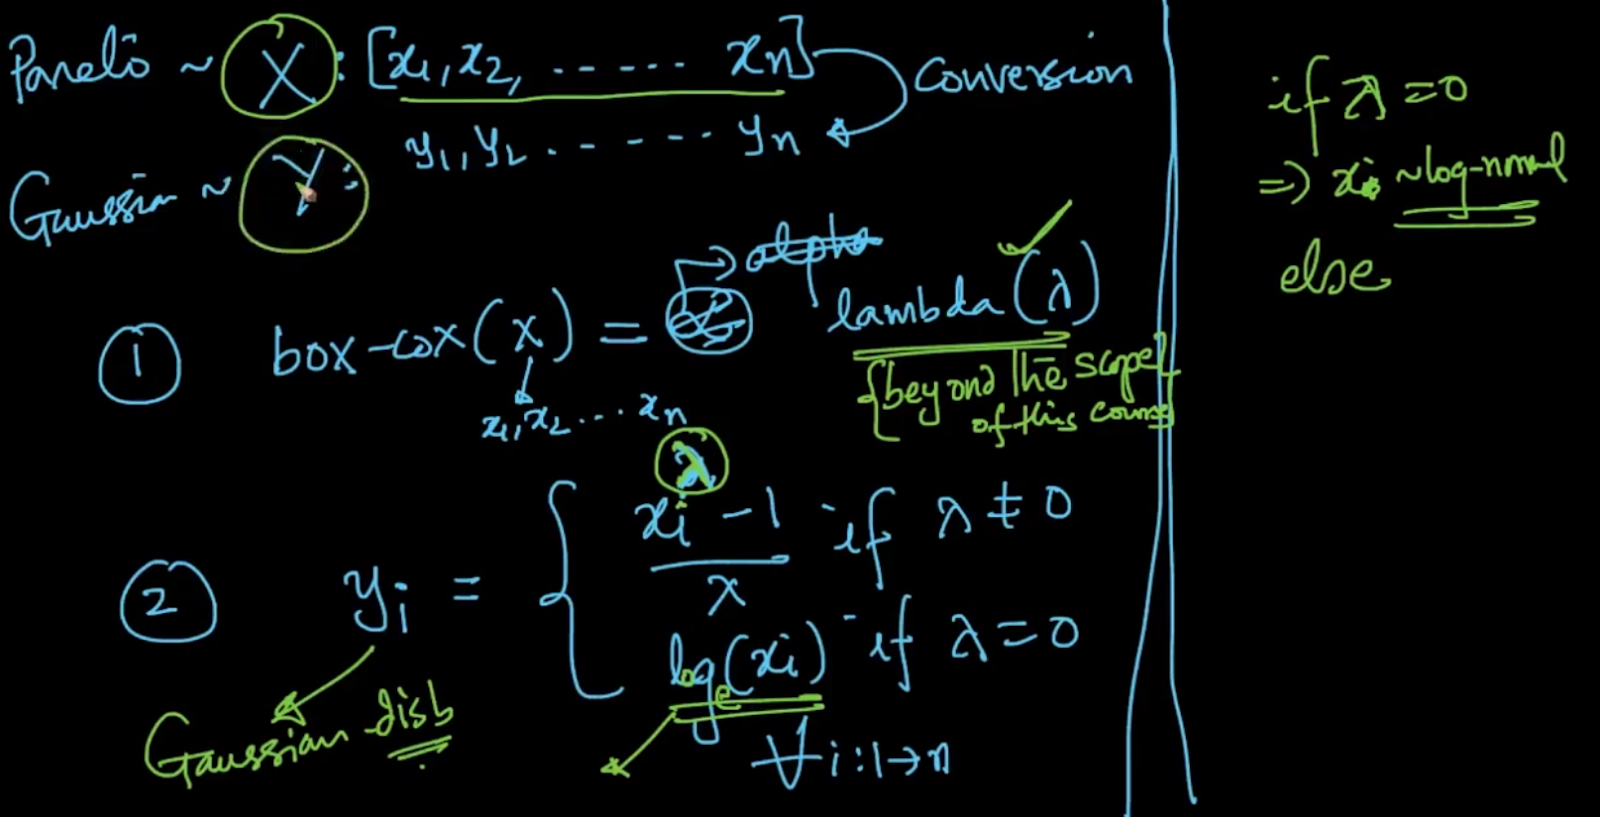 Pareto ~ X : [x₁, x₂, ...... xₙ] Conversion
Gaussian ~ Y : y₁, y₂ ...... yₙ
① box-cox(x) = α → alpha lambda (λ)
x₁, x₂ ... xₙ
{beyond the scope
of this course}
② yᵢ = { (xᵢ^λ - 1) / λ if λ ≠ 0
logₑ(xᵢ) if λ = 0
∀ i : 1 → n
Gaussian disb
if λ = 0
⇒ xᵢ ~ log-normal
else